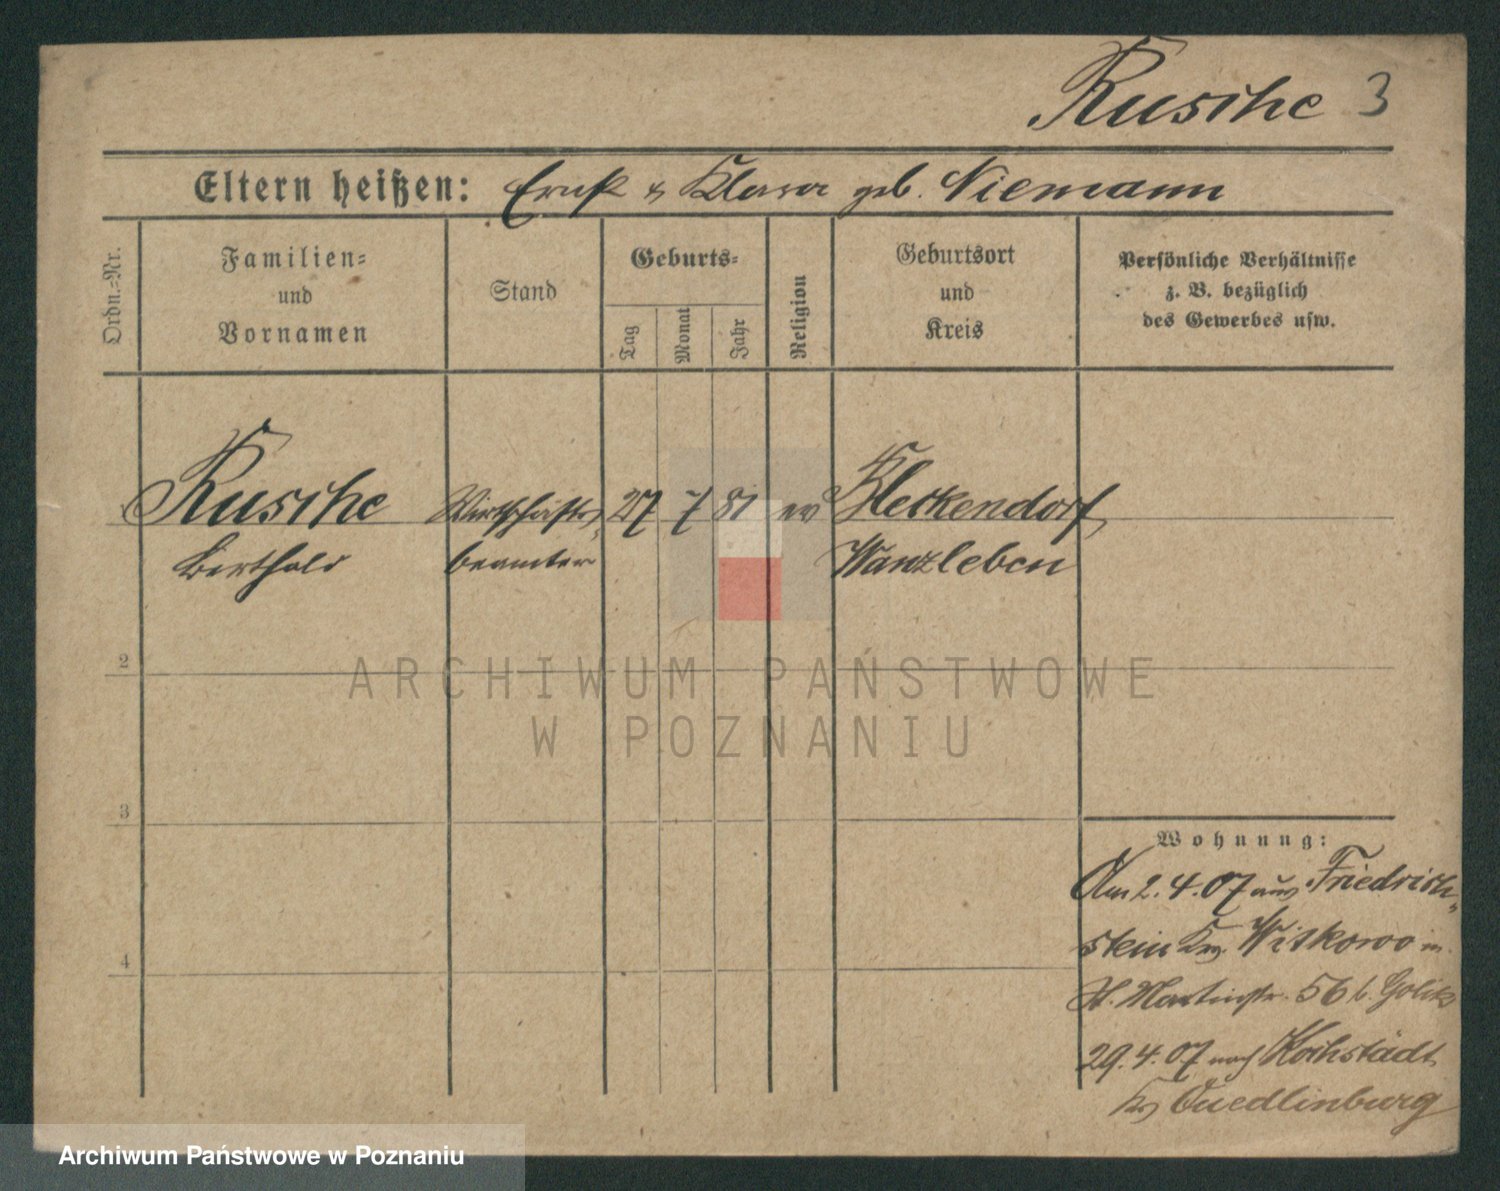 Rusche 3
Eltern heißen: Ernst & Klara geb. Niemann
Ordn.=Nr.
Familien=
und
Vornamen
Stand
Geburts=
Tag
Monat
Jahr
Religion
Geburtsort
und
Kreis
Persönliche Verhältnisse
z. B. bezüglich
des Gewerbes usw.
1 Rusche Wirtschafts= 27 7 81 ev Kleckendorf,
Berthold beamter Wanzleben
2
3
4
Wohnung:
Am 2.4.07 aus Friedrich=
stein Krs. Witkowo in
St. Martinstr. 56 b.
29.4.07 nach Kochstädt
Krs Quedlinburg
ARCHIWUM PAŃSTWOWE
W POZNANIU
Archiwum Państwowe w Poznaniu